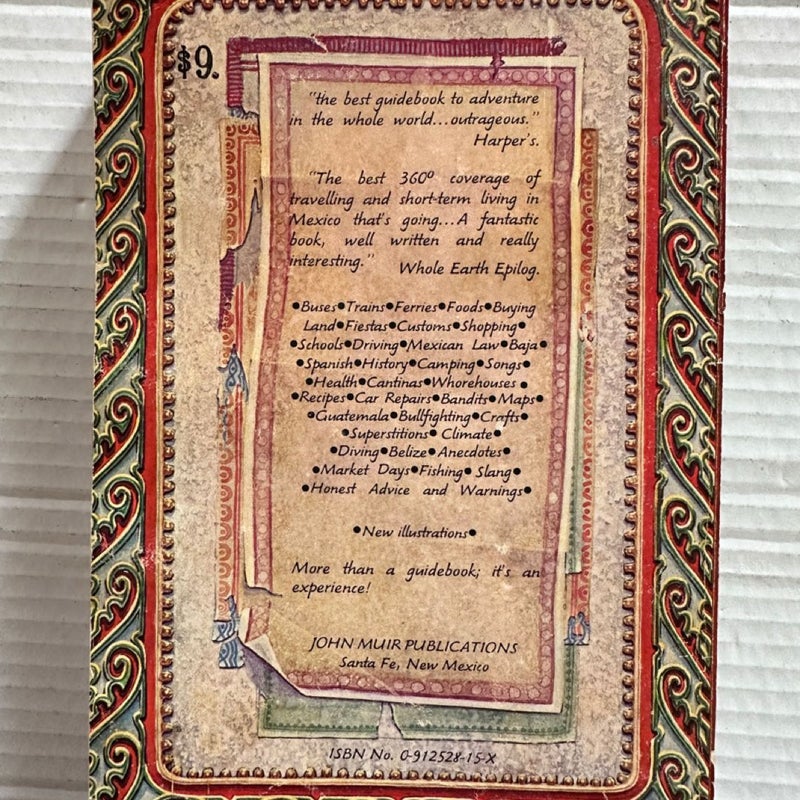 $9.
"the best guidebook to adventure
in the whole world...outrageous."
Harper's.
"The best 360º coverage of
travelling and short-term living in
Mexico that's going...A fantastic
book, well written and really
interesting." Whole Earth Epilog.
●Buses●Trains●Ferries●Foods●Buying
Land●Fiestas●Customs●Shopping●
●Schools●Driving●Mexican Law●Baja●
●Spanish●History●Camping●Songs●
●Health●Cantinas●Whorehouses●
●Recipes●Car Repairs●Bandits●Maps●
●Guatemala●Bullfighting●Crafts●
●Superstitions● Climate●
●Diving●Belize●Anecdotes●
●Market Days●Fishing● Slang●
●Honest Advice and Warnings●
●New illustrations●
More than a guidebook; it's an
experience!
JOHN MUIR PUBLICATIONS
Santa Fe, New Mexico
ISBN No. 0-912528-15-X